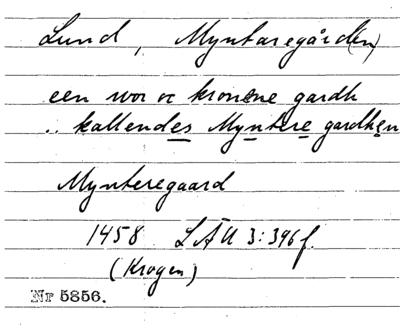 Lund, Myntaregård(en)
een wor oc kronene gardh
.. kallendes Myntere gardhen
Mynteregaard
1458 LÄU 3:396 f.
(Krogen)
Nr 5856.